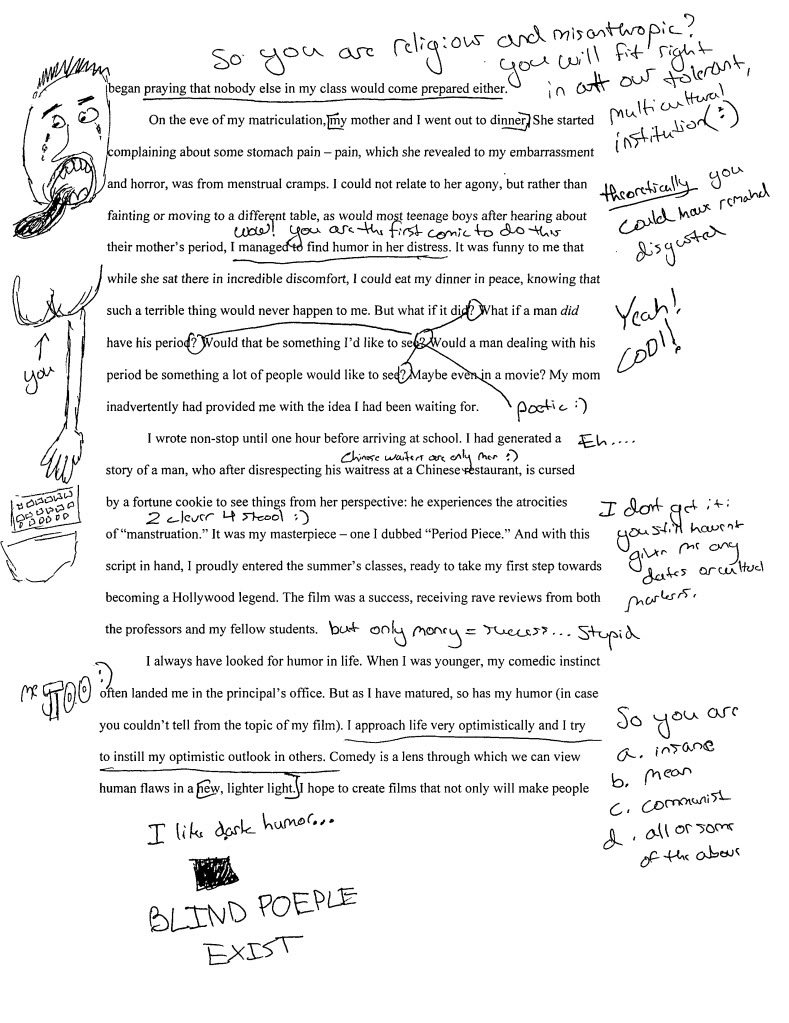 So you are religious and misanthropic?
you will fit right
in at our tolerant,
multicultural
institution (:)
began praying that nobody else in my class would come prepared either.
On the eve of my matriculation, my mother and I went out to dinner. She started
complaining about some stomach pain – pain, which she revealed to my embarrassment
and horror, was from menstrual cramps. I could not relate to her agony, but rather than
theoretically you
could have remained
disgusted
fainting or moving to a different table, as would most teenage boys after hearing about
wow! you are the first comic to do this
their mother's period, I managed to find humor in her distress. It was funny to me that
while she sat there in incredible discomfort, I could eat my dinner in peace, knowing that
such a terrible thing would never happen to me. But what if it did? What if a man did
Yeah!
COOL!
have his period? Would that be something I'd like to see? Would a man dealing with his
you
period be something a lot of people would like to see? Maybe even in a movie? My mom
inadvertently had provided me with the idea I had been waiting for.
Poetic :)
I wrote non-stop until one hour before arriving at school. I had generated a
Eh....
Chinese waiters are only men :)
story of a man, who after disrespecting his waitress at a Chinese restaurant, is cursed
by a fortune cookie to see things from her perspective: he experiences the atrocities
2 clever 4 stool :)
of "manstruation." It was my masterpiece – one I dubbed "Period Piece." And with this
I don't get it:
you still havent
given me any
dates or cultural
markers.
script in hand, I proudly entered the summer's classes, ready to take my first step towards
becoming a Hollywood legend. The film was a success, receiving rave reviews from both
the professors and my fellow students.
but only money = success... Stupid
I always have looked for humor in life. When I was younger, my comedic instinct
me TOO :)
often landed me in the principal's office. But as I have matured, so has my humor (in case
you couldn't tell from the topic of my film). I approach life very optimistically and I try
to instill my optimistic outlook in others. Comedy is a lens through which we can view
human flaws in a new, lighter light. I hope to create films that not only will make people
So you are
a. insane
b. mean
c. communist
d. all or some
of the above
I like dark humor...
BLIND POEPLE
EXIST